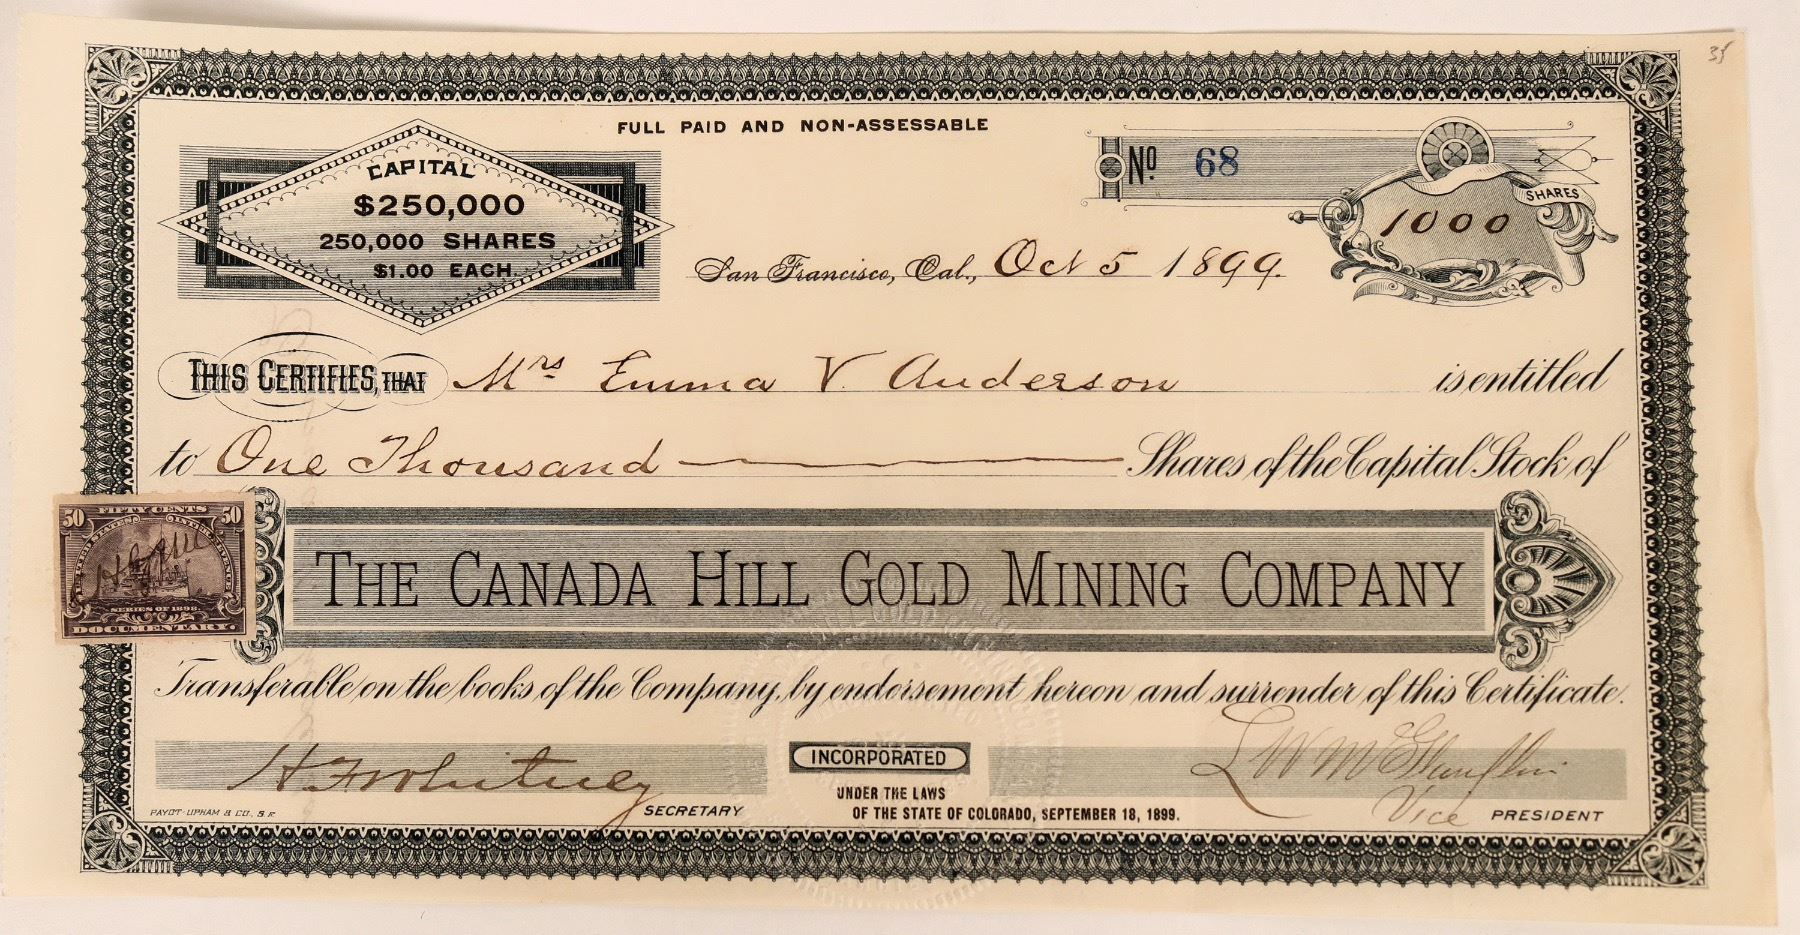 35
FULL PAID AND NON-ASSESSABLE
CAPITAL
$250,000
250,000 SHARES
$1.00 EACH.
Nº 68
SHARES
1000
San Francisco, Cal., Oct 5 1899.
THIS CERTIFIES, THAT Mrs Emma V. Anderson is entitled
to One Thousand Shares of the Capital Stock of
50 FIFTY CENTS 50
UNITED STATES INTER. REVENUE
SERIES OF 1898
DOCUMENTARY.
THE CANADA HILL GOLD MINING COMPANY
Transferable on the books of the Company, by endorsement hereon and surrender of this Certificate.
H F Whitney SECRETARY
INCORPORATED
UNDER THE LAWS
OF THE STATE OF COLORADO, SEPTEMBER 18, 1899.
L W
Vice PRESIDENT
PAYOT-UPHAM & CO., S.F.